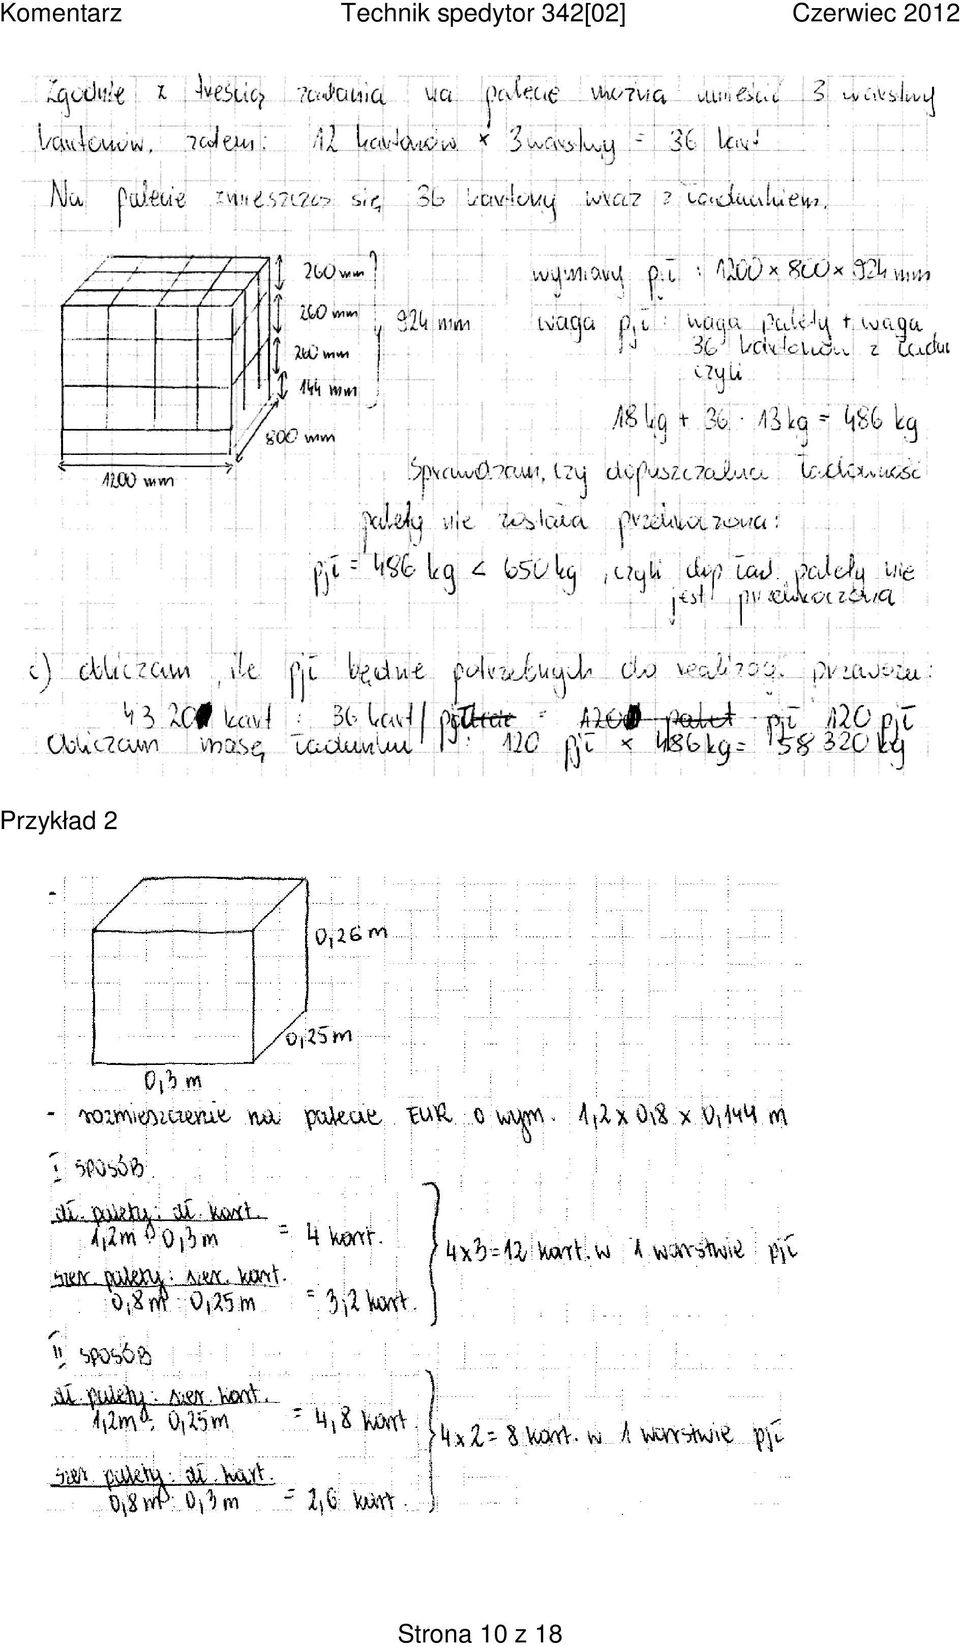 Komentarz Technik spedytor 342[02] Czerwiec 2012
Zgodnie z treścią zadania na palecie można umieścić 3 warstwy
kartonów, zatem: 12 kartonów x 3 warstwy = 36 kart
Na palecie zmieszczą się 36 kartony wraz z ładunkiem.
260 mm
260 mm
260 mm
144 mm
924 mm
800 mm
1200 mm
wymiary pjł : 1200 x 800 x 924 mm
waga pjł : waga palety + waga
36 kartonów z ładun
czyli
18 kg + 36 · 13 kg = 486 kg
Sprawdzam, czy dopuszczalna ładowność
palety nie została przekroczona:
pjł = 486 kg < 650 kg , czyli dop ład. palety nie
jest przekroczona
c) obliczam , ile pjł będzie potrzebnych do realizacji przewozu:
43 200 kart : 36 kart/ pjł = pjł 120 pjł
Obliczam masę ładunku : 120 pjł x 486 kg = 58 320 kg
Przykład 2
-
0,26 m
0,25 m
0,3 m
- rozmieszczenie na palecie EUR o wym. 1,2 x 0,8 x 0,144 m
I SPOSÓB
dł. palety : dł. kart.
1,2 m : 0,3 m = 4 kart.
szer. palety : szer. kart.
0,8 m : 0,25 m = 3,2 kart.
4x3=12 kart. w 1 warstwie pjł
II SPOSÓB
dł. palety : szer. kart.
1,2 m : 0,25 m = 4,8 kart.
szer. palety : dł. kart.
0,8 m : 0,3 m = 2,6 kart.
4x2= 8 kart. w 1 warstwie pjł
Strona 10 z 18